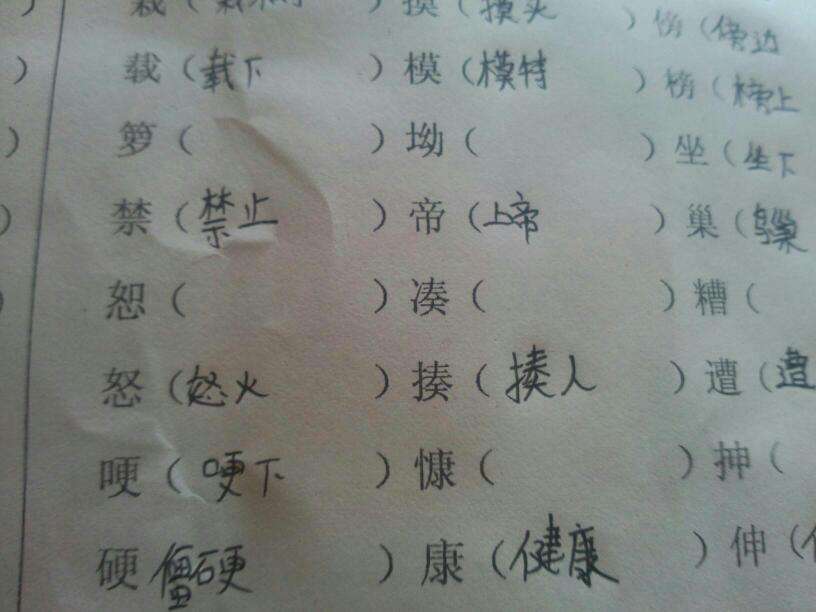 栽（ ）摸（摸头 ）傍（傍边
）载（载下 ）模（模特 ）榜（榜上
）箩（ ）坳（ ）坐（坐下
）禁（禁止 ）帝（上帝 ）巢（鸟巢
）恕（ ）凑（ ）糟（
怒（怒火 ）揍（揍人 ）遭（遭
哽（哽下 ）慷（ ）抻（
硬 僵硬 ）康（健康 ）伸（